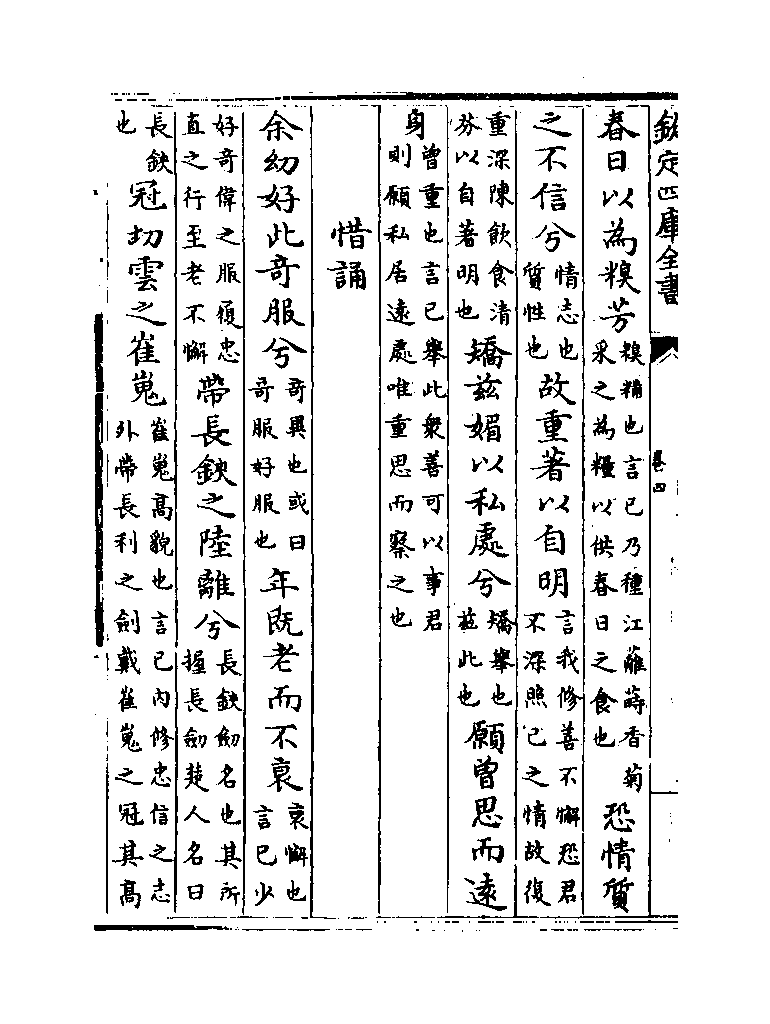 欽定四庫全書
卷四
春日以為糗芳糗糒也言已乃種江蘺蒔香菊采之為糧以供春日之食也恐情質
之不信兮情志也質性也故重著以自明言我修善不懈恐君不深照已之情故復
重深陳飲食清芬以自著明也矯兹媚以私處兮矯舉也兹此也願曾思而遠
身曾重也言已舉此衆善可以事君則願私居遠處唯重思而察之也
惜誦
余幼好此竒服兮竒異也或曰竒服好服也年既老而不衰衰懈也言已少
好竒偉之服履忠直之行至老不懈帶長鋏之陸離兮長鋏劒名也其所握長劒楚人名曰
長鋏也冠切雲之崔嵬崔嵬高貌也言已内修忠信之志外帶長利之劒戴崔嵬之冠其高